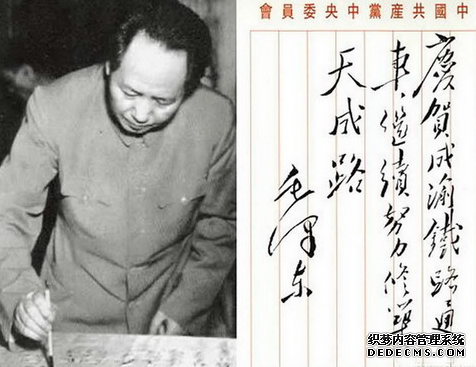 中國共產黨中央委員會
慶賀成渝鐵路通
車,继續努力修築
天成路
毛泽东
织梦内容管理系统
DEDECMS.COM